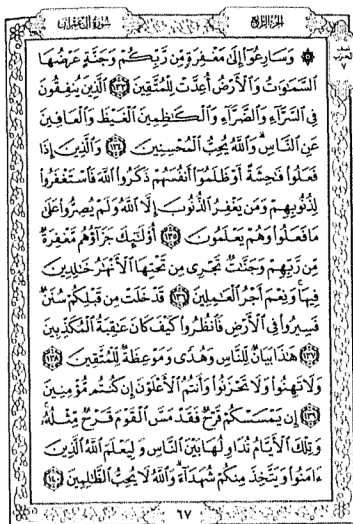 الجزء الرابع سورة آل عمران
۞ وَسَارِعُوٓا۟ إِلَىٰ مَغْفِرَةٍ مِّن رَّبِّكُمْ وَجَنَّةٍ عَرْضُهَا
ٱلسَّمَٰوَٰتُ وَٱلْأَرْضُ أُعِدَّتْ لِلْمُتَّقِينَ ١٣٣ ٱلَّذِينَ يُنفِقُونَ
فِى ٱلسَّرَّآءِ وَٱلضَّرَّآءِ وَٱلْكَٰظِمِينَ ٱلْغَيْظَ وَٱلْعَافِينَ
عَنِ ٱلنَّاسِ ۗ وَٱللَّهُ يُحِبُّ ٱلْمُحْسِنِينَ ١٣٤ وَٱلَّذِينَ إِذَا
فَعَلُوا۟ فَٰحِشَةً أَوْ ظَلَمُوٓا۟ أَنفُسَهُمْ ذَكَرُوا۟ ٱللَّهَ فَٱسْتَغْفَرُوا۟
لِذُنُوبِهِمْ وَمَن يَغْفِرُ ٱلذُّنُوبَ إِلَّا ٱللَّهُ وَلَمْ يُصِرُّوا۟ عَلَىٰ
مَا فَعَلُوا۟ وَهُمْ يَعْلَمُونَ ١٣٥ أُو۟لَٰٓئِكَ جَزَآؤُهُم مَّغْفِرَةٌ
مِّن رَّبِّهِمْ وَجَنَّٰتٌ تَجْرِى مِن تَحْتِهَا ٱلْأَنْهَٰرُ خَٰلِدِينَ
فِيهَا ۚ وَنِعْمَ أَجْرُ ٱلْعَٰمِلِينَ ١٣٦ قَدْ خَلَتْ مِن قَبْلِكُمْ سُنَنٌ
فَسِيرُوا۟ فِى ٱلْأَرْضِ فَٱنظُرُوا۟ كَيْفَ كَانَ عَٰقِبَةُ ٱلْمُكَذِّبِينَ
١٣٧ هَٰذَا بَيَانٌ لِّلنَّاسِ وَهُدًى وَمَوْعِظَةٌ لِّلْمُتَّقِينَ ١٣٨
وَلَا تَهِنُوا۟ وَلَا تَحْزَنُوا۟ وَأَنتُمُ ٱلْأَعْلَوْنَ إِن كُنتُم مُّؤْمِنِينَ
١٣٩ إِن يَمْسَسْكُمْ قَرْحٌ فَقَدْ مَسَّ ٱلْقَوْمَ قَرْحٌ مِّثْلُهُۥ ۚ
وَتِلْكَ ٱلْأَيَّامُ نُدَاوِلُهَا بَيْنَ ٱلنَّاسِ وَلِيَعْلَمَ ٱللَّهُ ٱلَّذِينَ
ءَامَنُوا۟ وَيَتَّخِذَ مِنكُمْ شُهَدَآءَ ۗ وَٱللَّهُ لَا يُحِبُّ ٱلظَّٰلِمِينَ ١٤٠
٦٧